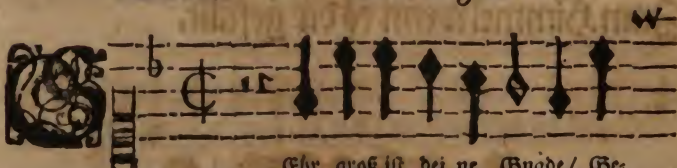 SEhr groß ist dei ne Gnade/ Ge-